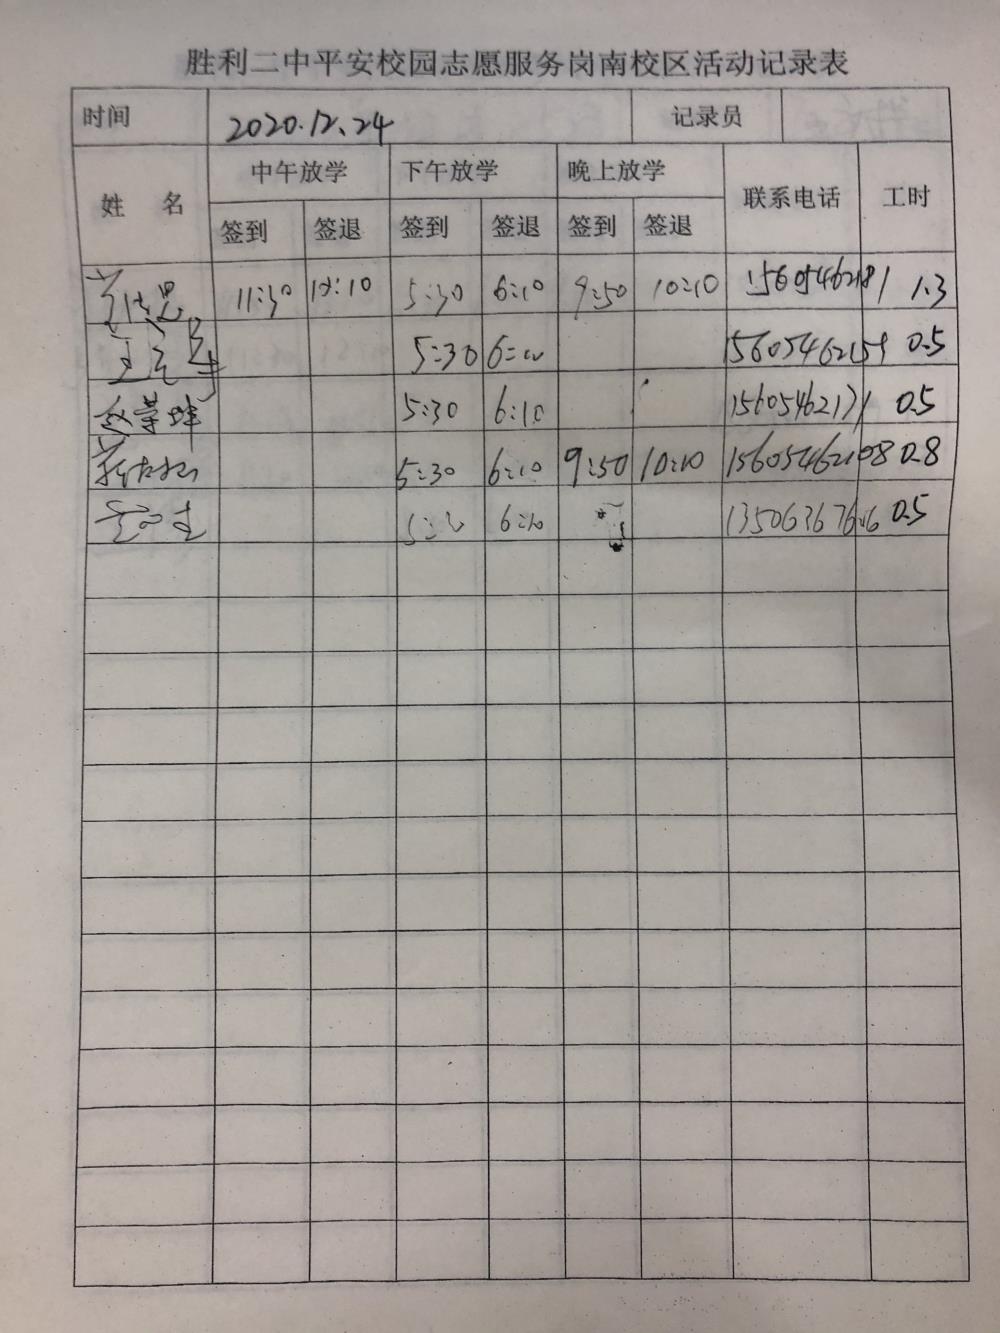 胜利二中平安校园志愿服务岗南校区活动记录表
时间 2020.12.24 记录员
姓 名 中午放学 下午放学 晚上放学 联系电话 工时
签到 签退 签到 签退 签到 签退
11:30 12:10 5:30 6:10 9:50 10:10 15605462181 1.3
5:30 6:10 15605462159 0.5
赵荣 5:30 6:10 15605462171 0.5
5:30 6:10 9:50 10:10 15605462108 0.8
6:10 0.5